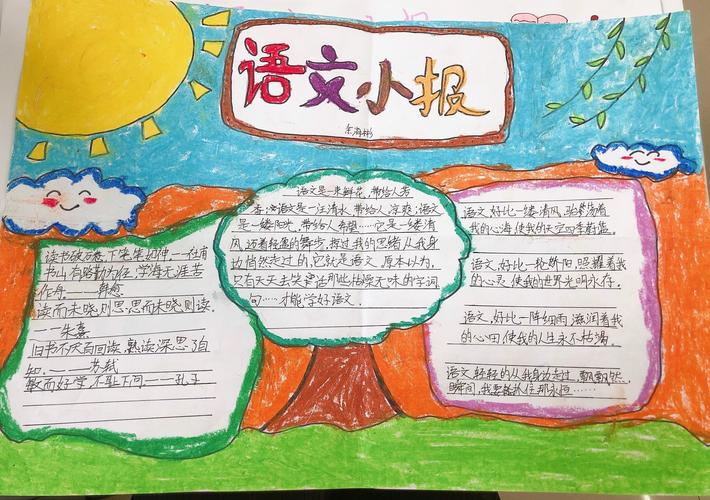 语文小报
余海彬
读书破万卷,下笔如有神.——杜甫
书山有路勤为径,学海无涯苦
作舟.——韩愈
读而未晓,则思,思而未晓,则读.
——朱熹
旧书不厌百回读,熟读深思子自
知.——苏轼
敏而好学,不耻下问.——孔子
语文是一束鲜花,带给人芳
香;语文是一汪清水,带给人凉爽;语文
是一缕阳光,带给人希望……它是一缕清
风,迈着轻盈的舞步,挥过我的思绪,从我身
边悄然走过的,它就是语文.原本以为,
只有天天去背那些枯燥无味的字词
句……才能学好语文.
语文,好比一缕清风,飘荡着
我的心海,使我的天空四季蔚蓝.
语文,好比一轮骄阳,照耀着我
的心灵,使我的世界光明永存.
语文,好比一阵细雨,滋润着我
的心田,使我的人生永不枯竭.
语文轻轻的从我身边走过,飘飘然.
瞬间,我要抓住那永恒……